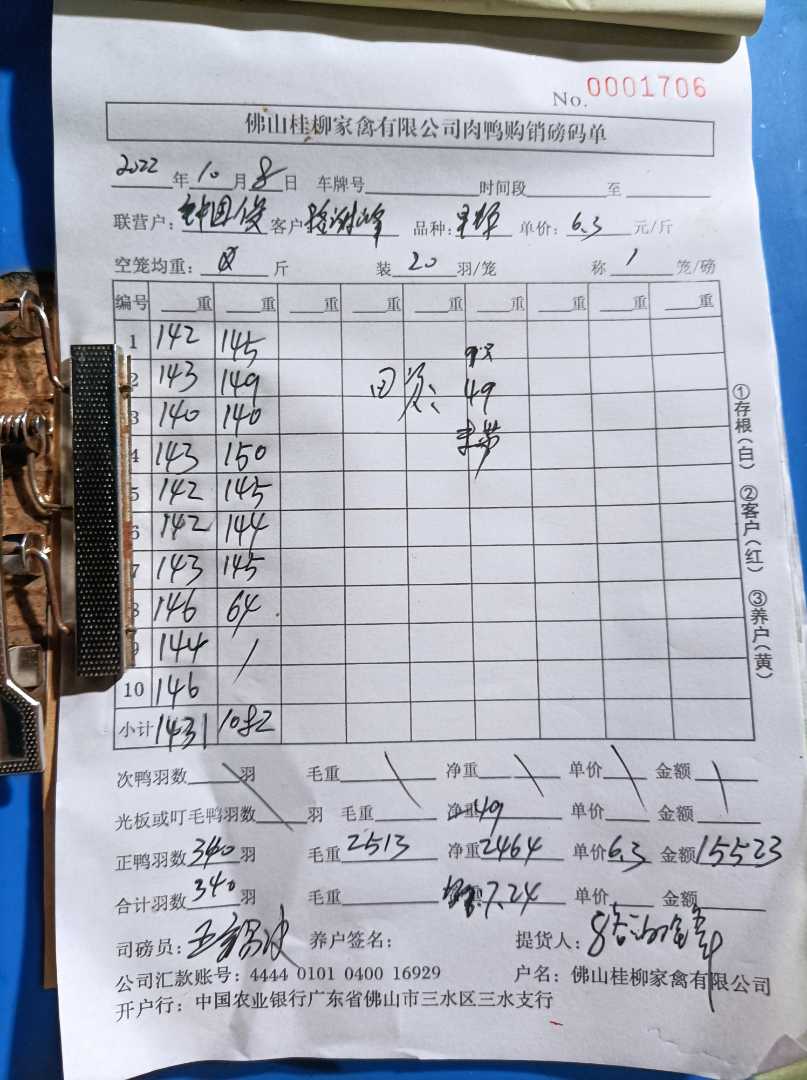 No. 0001706
佛山桂柳家禽有限公司肉鸭购销磅码单
2022年10月8日 车牌号 时间段 至
联营户: 钟国俊 客户 品种: 单价: 6.3 元/斤
空笼均重: 斤 装 20 羽/笼 称 1 笼/磅
编号 重 重 重 重 重 重 重 重 重
1 142 145
2 143 149 49
3 140 140
4 143 150
5 142 145
6 142 144
7 143 145
8 146 64
9 144 /
10 146
小计 1431 1082
①存根(白) ②客户(红) ③养户(黄)
次鸭羽数 羽 毛重 净重 单价 金额
光板或叮毛鸭羽数 羽 毛重 净重 49 单价 金额
正鸭羽数 340 羽 毛重 2513 净重 2464 单价 6.3 金额 15523
合计羽数 340 羽 毛重 7.24 单价 金额
司磅员: 养户签名: 提货人:
公司汇款账号: 4444 0101 0400 16929 户名: 佛山桂柳家禽有限公司
开户行: 中国农业银行广东省佛山市三水区三水支行